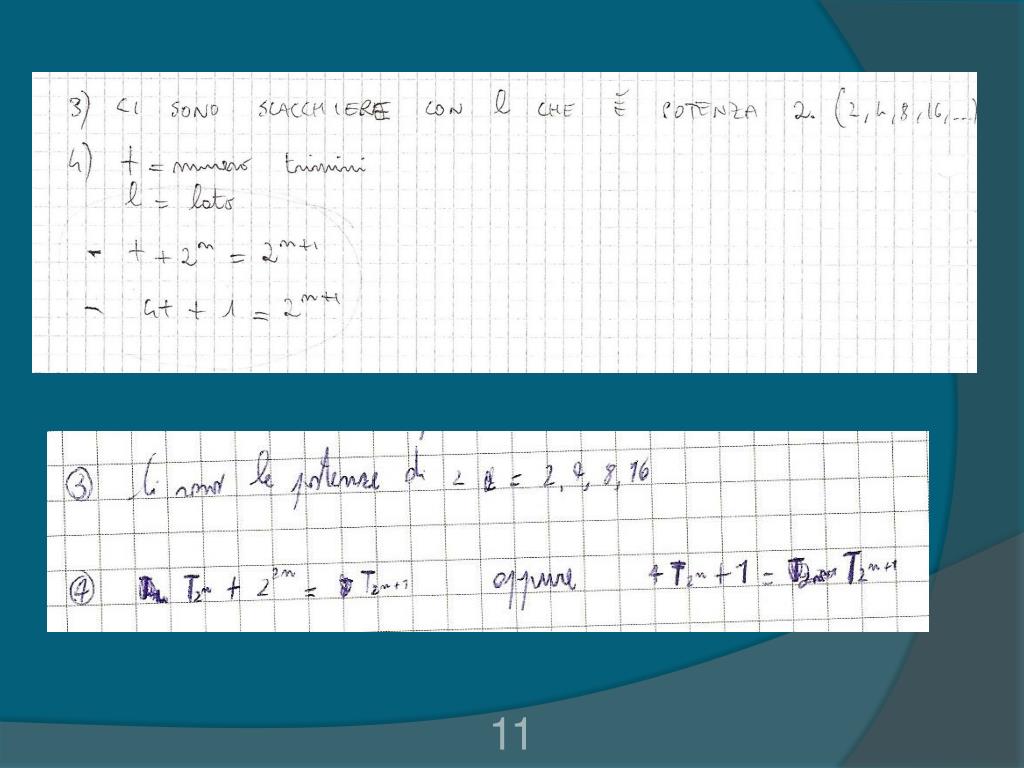 3) CI SONO SCACCHIERE CON l CHE È POTENZA 2. (2,4,8,16,...)
4) t = numero trimini
l = lato
- t + 2^n = 2^{n+1}
- 4t + 1 = 2^{n+1}
③ Ci sono le potenze di 2 l = 2, 4, 8, 16
④ T_{2^n} + 2^{2n} = T_{2^{n+1}} oppure 4 T_{2^n} + 1 = T_{2^{n+1}}
11